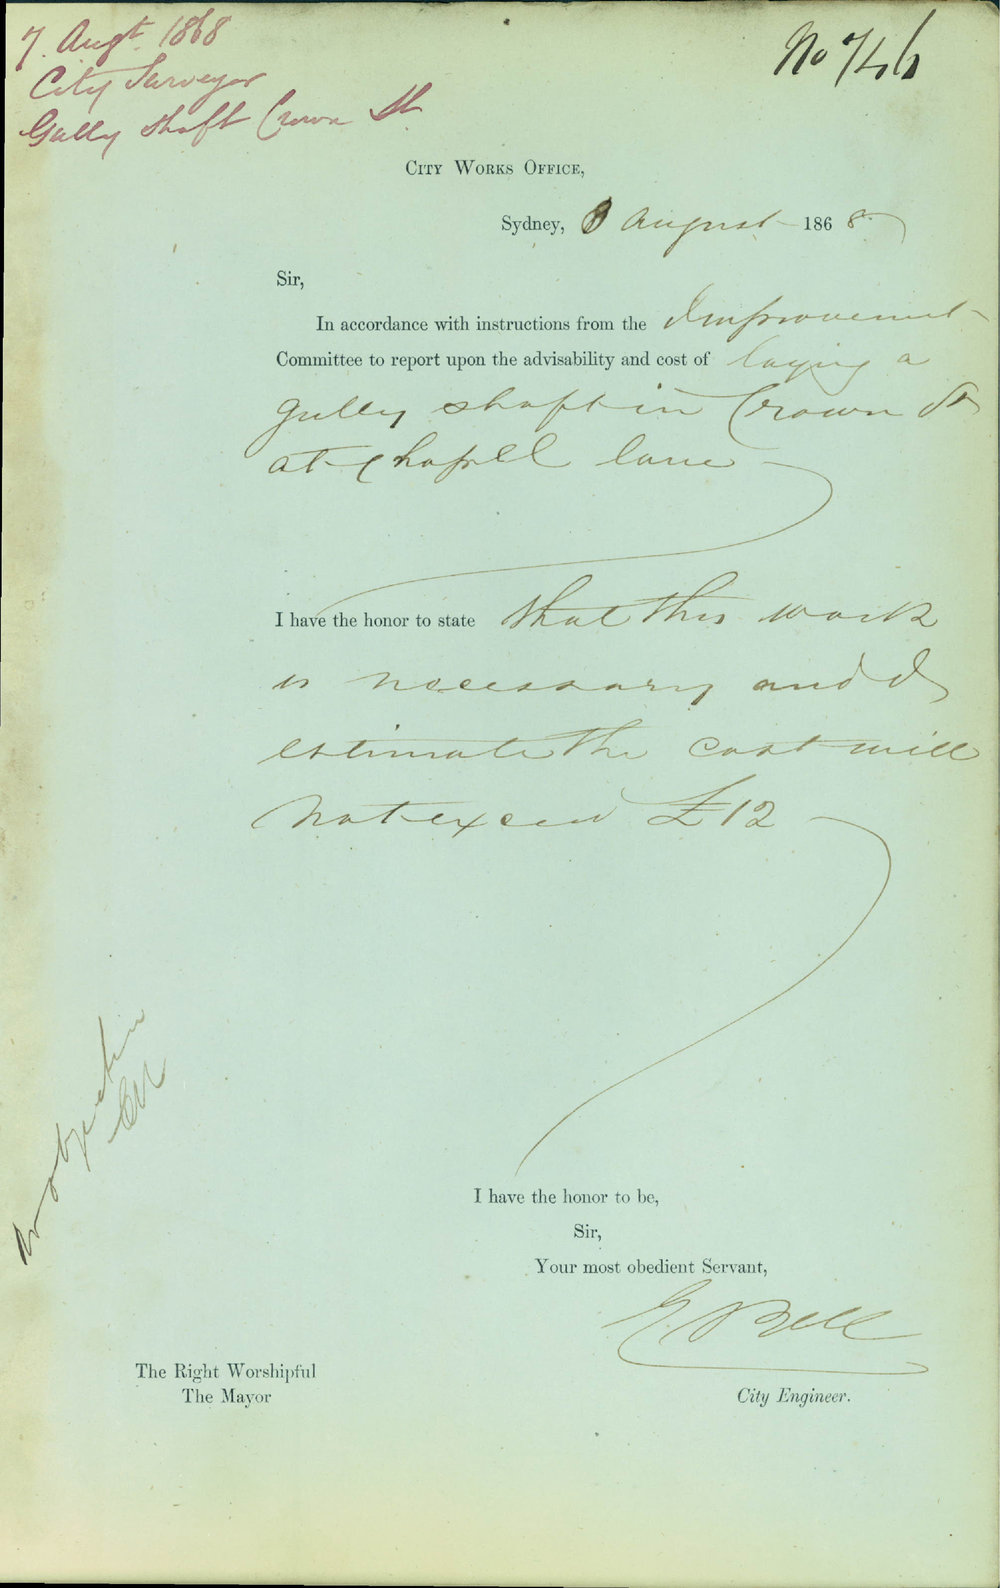 7. Augt. 1868
City Surveyor
Gully Shaft Crown St
No 746
City Works Office,
Sydney, August 1868
Sir,
In accordance with instructions from the Improvement
Committee to report upon the advisability and cost of laying a
gully shaft in Crown St
at Chapell lane
I have the honor to state that this work
is necessary and I
estimate the cost will
not exceed £12
No objection
I have the honor to be,
Sir,
Your most obedient Servant,
E Bell
The Right Worshipful
The Mayor
City Engineer.